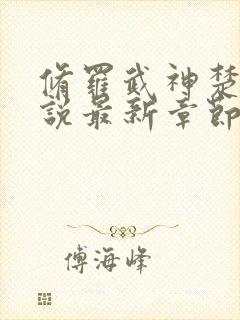 脩羅武神楚
說最新章節
傅海峰